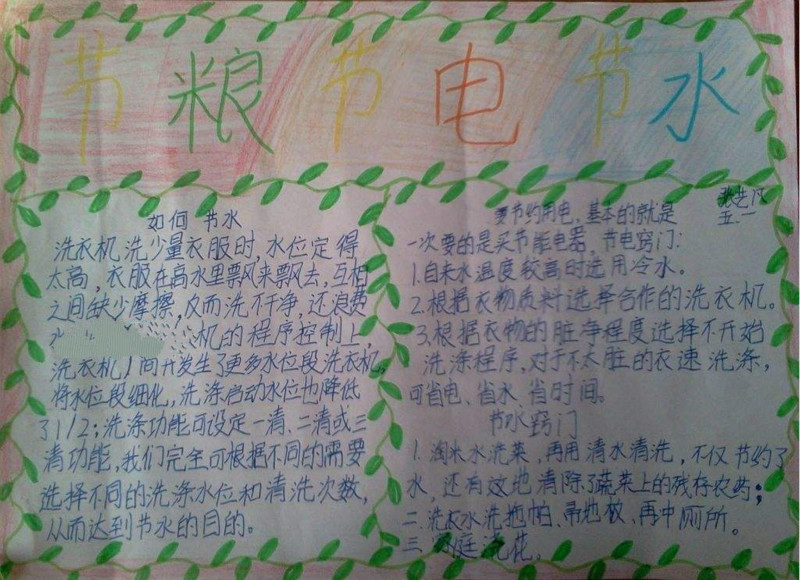 节粮节电节水
如何 节水
洗衣机洗少量衣服时,水位定得
太高,衣服在高水里票风来票风去,互相
之间缺少摩擦,反而洗不干净,还浪费
机的程序控制上,
洗衣机厂间开发生了更多水位段洗衣机,
将水位段细化,洗涤启动水位也降低
了1/2;洗涤功能可设定一清、二清或三
清功能,我们完全可根据不同的需要
选择不同的洗涤水位和清洗次数,
从而达到节水的目的。
张艺
五.一
要节约用电,基本的就是
一次要的是买节能电器,节电窍门:
1.自来水温度较高时选用冷水。
2.根据衣物质料选择合作的洗衣机。
3.根据衣物的脏净程度选择不开始
洗涤程序,对于不太脏的衣速洗涤,
可省电、省水 省时间。
节水窍门
1.淘米水洗菜,再用清水清洗,不仅节约了
水,还有这地清除了蔬菜上的残存农药;
二.洗衣水洗拖帕、地板、再中厕所。
三 家庭浇花。